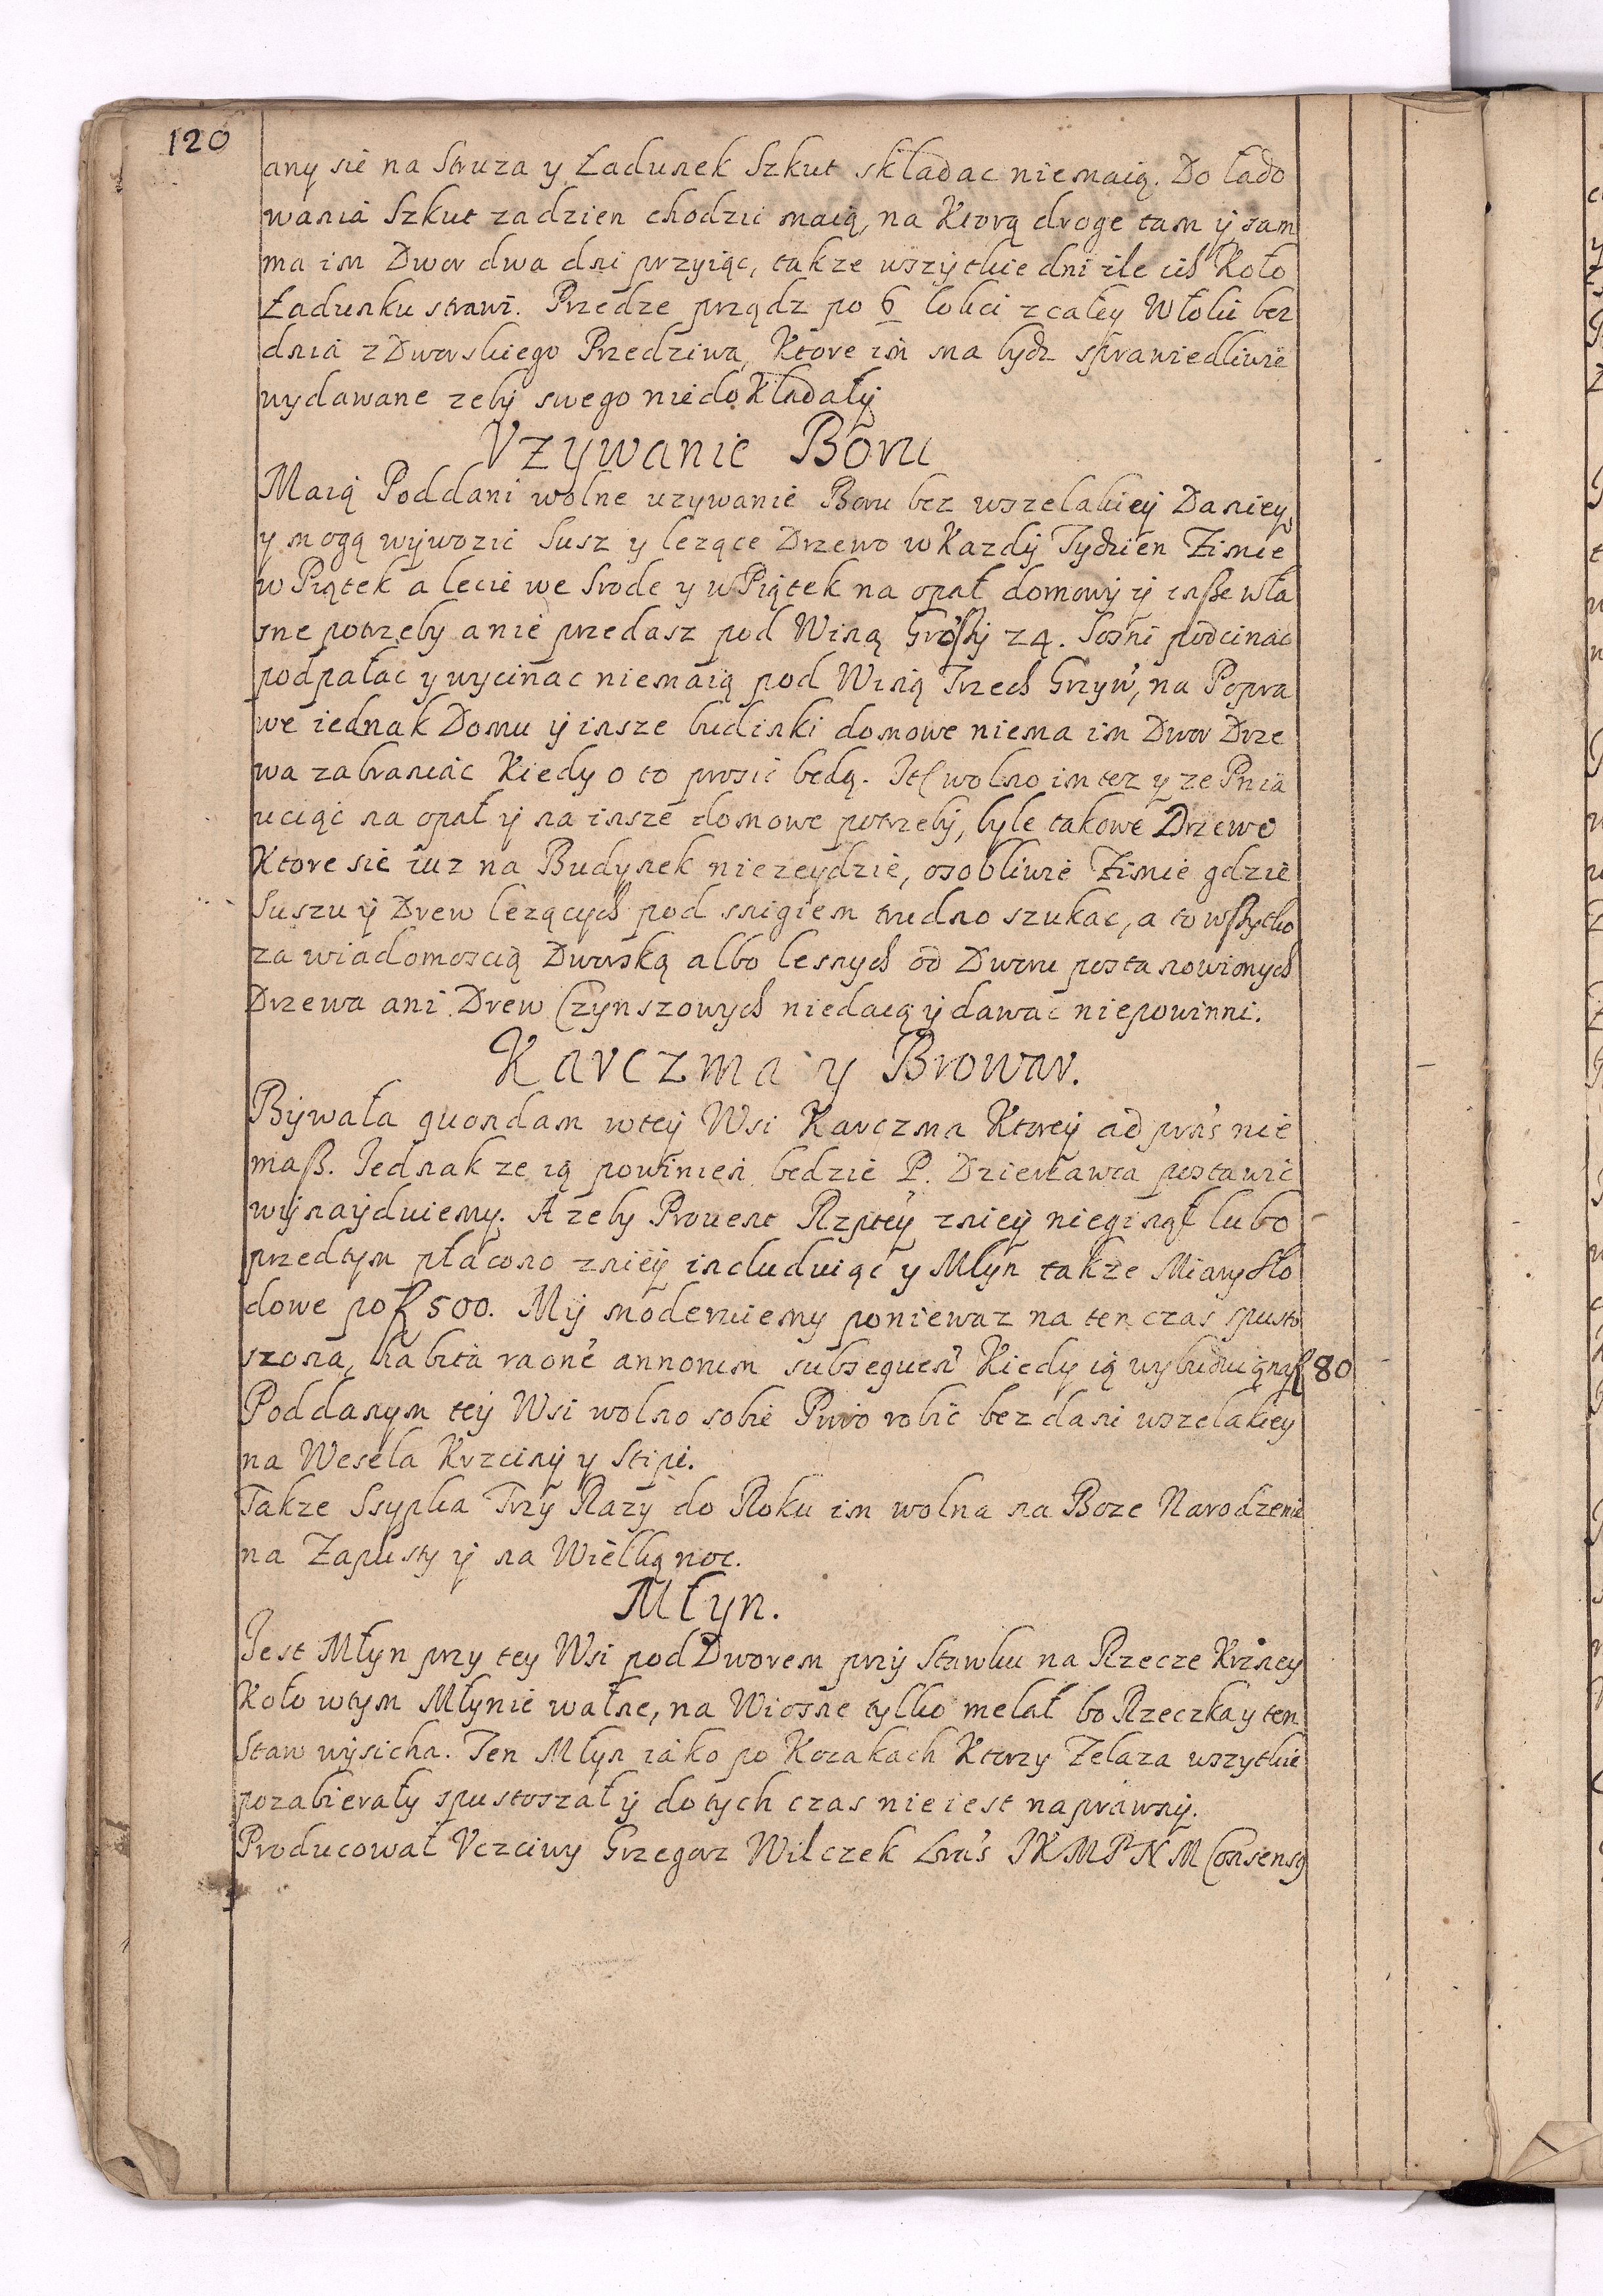 120
any sie na Struza y Ładunek Szkut składac niemaią. Do łado
wania Szkut zadzien chodzic maią, na Ktorą droge tam y sam
ma im Dwor dwa dni przyiąc, takze wszytkie dni ile ich Koło
Ładunku strawi. Przedze prządz po 6 łokci z całey Włoki bez
dnia z Dworskiego Przedziwa, Ktore im ma bydz sprawiedliwie
wydawane zeby swego niedokładały
Vzywanie Boru
Maią Poddani wolne uzywanie Boru bez wszelakiey Daniey,
y mogą wywozic Susz y lezące Drzewo w Kazdy Tydzien Zimie
w Piątek a lecie we Srode y w Piątek na opał domowy y insze wła
sne potrzeby a nie przedasz pod Winą Groszy 24. Sosni podcinac
podpałac y wycinac niemaią pod Winą Trzech Grzyw, na Popra
we iednak Domu y insze budinki domowe niema im Dwor Drze
wa zabraniac Kiedy o to prosic będą. It wolno im tez y ze Pnia
uciąc na opał y na insze domowe potrzeby, byle takowe Drzewo
Ktore sie iuz na Budynek niezeydzie, osobliwie Zimie gdzie
Suszu y Drew lezących pod snigiem trudno szukac, a to wszytko
za wiadomoscią Dworską albo lesnych od Dworu postanowionych
Drzewa ani Drew Czynszowych niedaią y dawac niepowinni.
Karczma y Browar.
Bywała quondam w tey Wsi Karczma Ktorey ad prns nie
masz. Jednak ze ią powinien bedzie P. Dzierławca postawic
wynayduiemy. A zeby Prouent Rzptey zniey nieginął lubo
przedtym płacono zniey includuiąc y Młyn takze Miary Sło
dowe po f 500. My moderuiemy poniewaz na ten czas spusto
szona, habita raone annorum subsequen Kiedy ią wybuduią na f 80
Poddanym tey Wsi wolno sobie Piwo robic bez dani wszelakiey
na Wesela Krzciny y Stipi.
Takze Ssypka Trzy Razy do Roku im wolna na Boze Narodzenie
na Zapusty y na Wielkąnoc.
Młyn.
Jest Młyn przy tey Wsi pod Dworem przy Stawku na Rzecze Krzney
Koło w tym Młynie walne, na Wiosne tylko mełał bo Rzeczka y ten
Staw wysicha. Ten Młyn iako po Kozakach Ktorzy Zelaza wszytkie
pozabierały spustoszał y do tych czas nie iest naprawny.
Producował Vczciwy Grzegorz Wilczek Lras JKMPNM Consensą